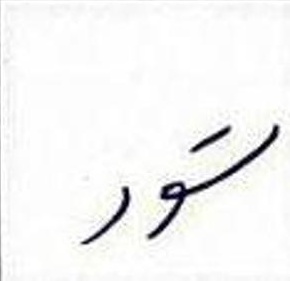 ستور